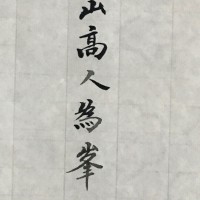 山高人為峯